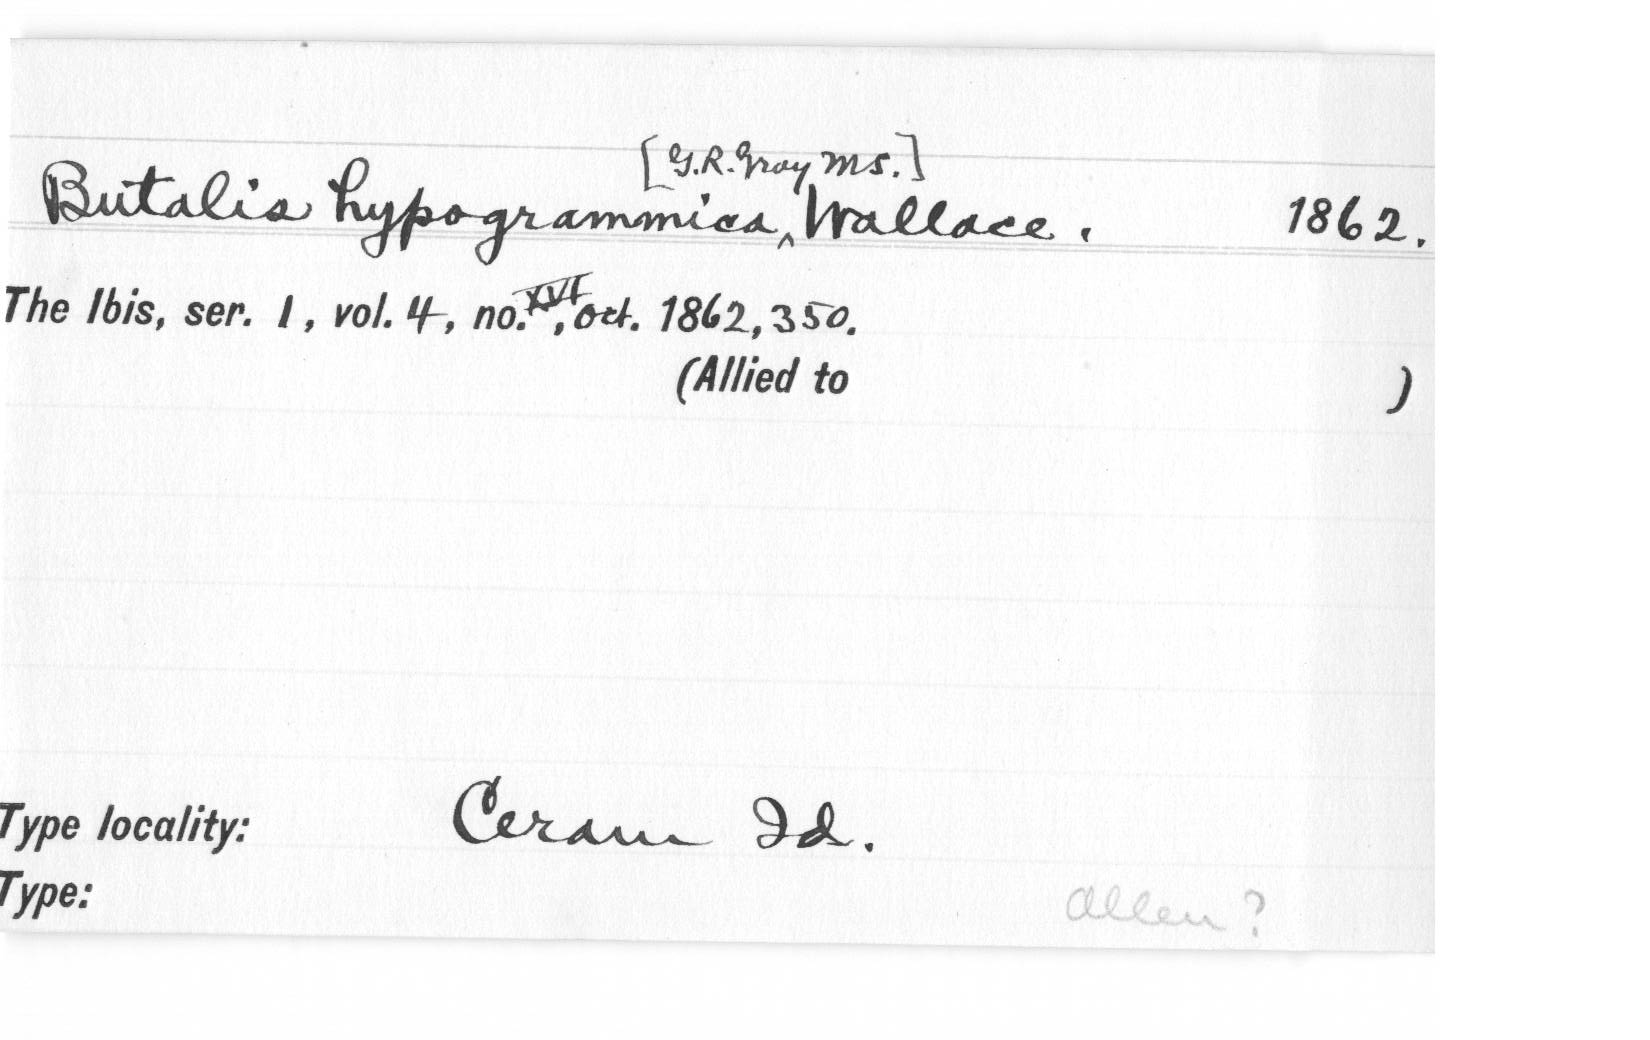 Butalis hypogrammica ^ [G.R. Gray MS.] Wallace. 1862.
The Ibis, ser. 1, vol. 4, no. XVI, Oct. 1862, 350.
(Allied to )
Type locality: Ceram Id.
Type:
Allen?